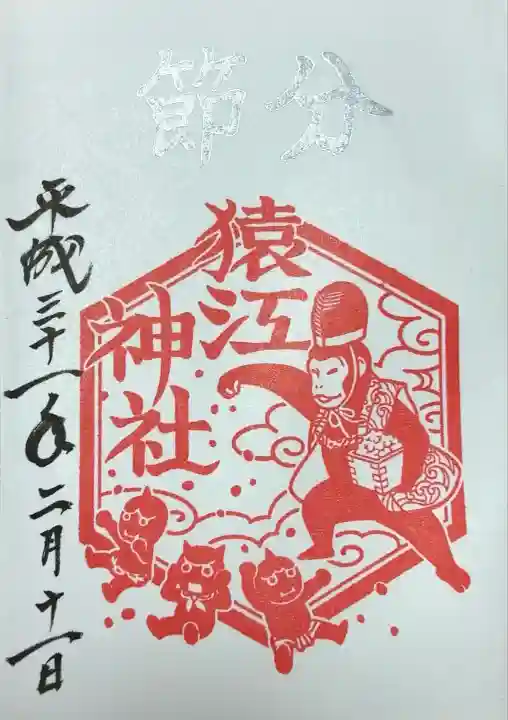 節分
猿江
神社
平成三十一年二月十一日